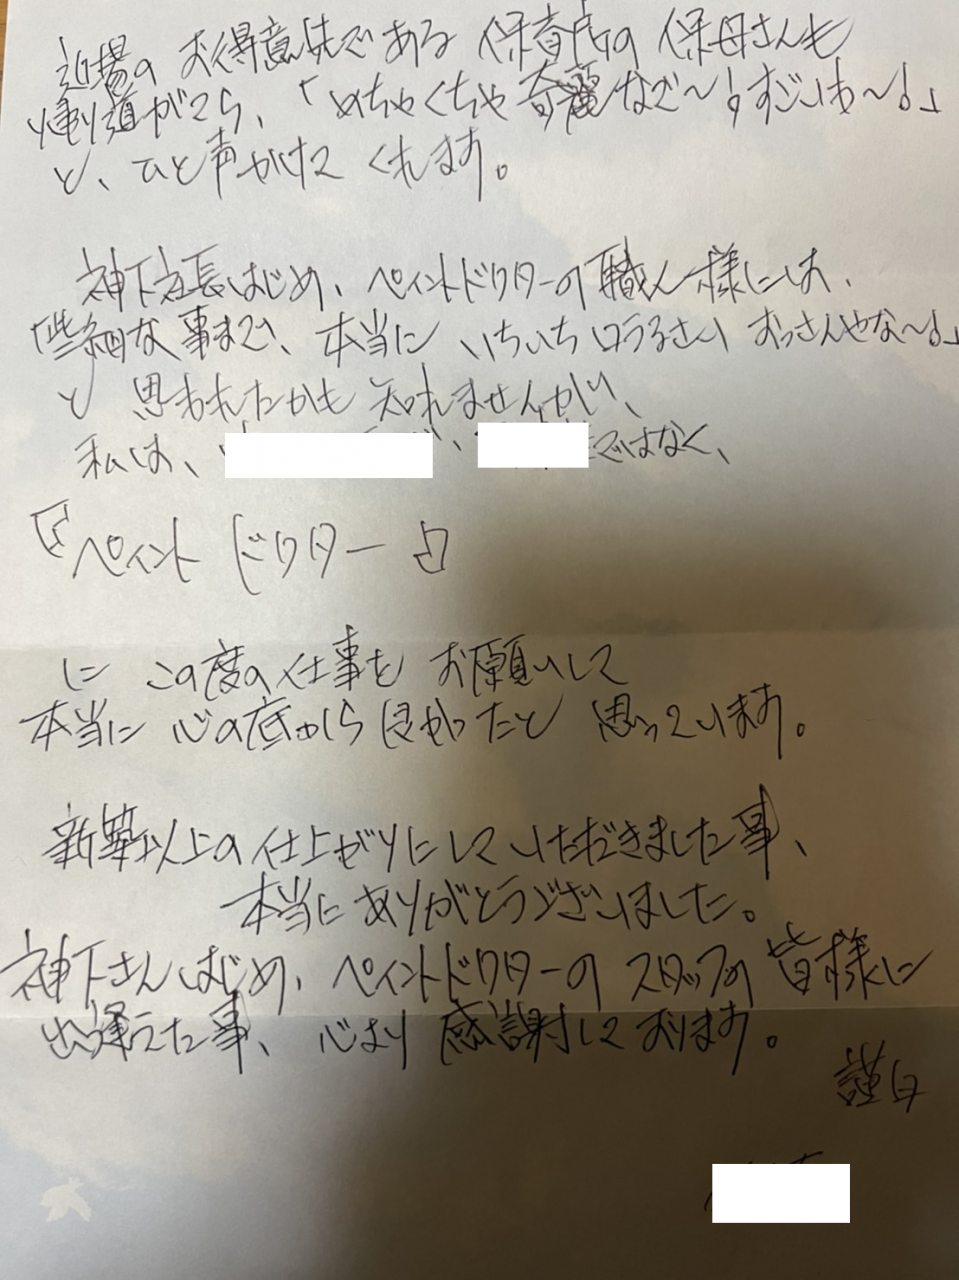 近場のお得意先である保育所の保母さんも
帰り道がてら、「めちゃくちゃ奇麗なで〜!すごいわ〜!」
と、ひと声かけてくれます。
神下社長はじめ、ペイントドクターの職人様には、
「些細な事まで、本当にいちいち口うるさいおっさんやな〜!」
と思われたかも知れませんがい、
私は、
ではなく、
『ペイントドクター』
にこの度の仕事をお願いして
本当に心の底から良かったと思っています。
新築以上の仕上がりにしていただきました事、
本当にありがとうございました。
神下さんはじめ、ペイントドクターのスタッフの皆様に
出逢えた事、心より感謝しております。
謹白